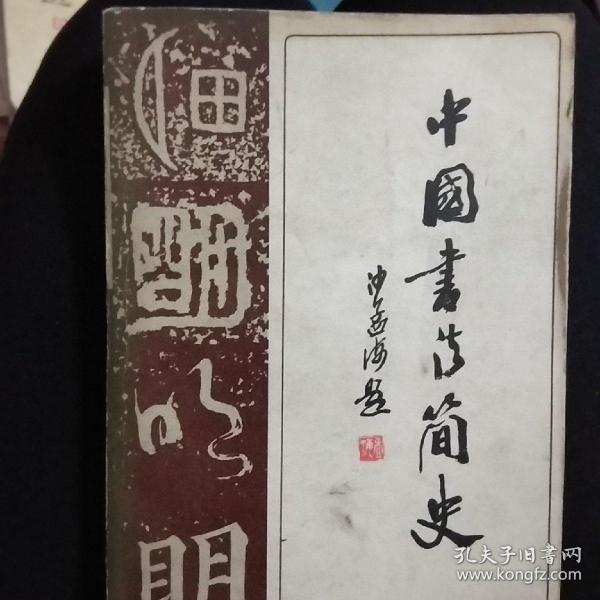 中國書法简史
沙孟海题
明
明
孔夫子旧書网
www.kongfz.com